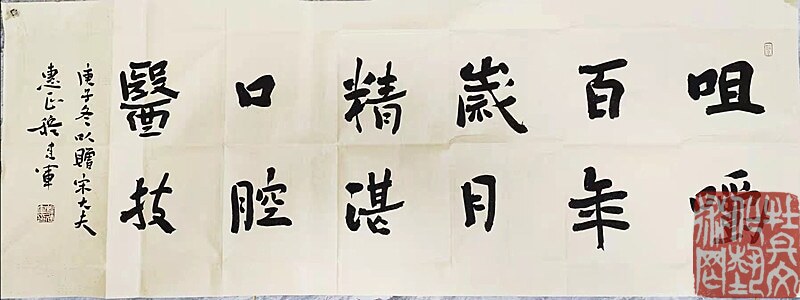 咀嚼
百年
歲月
精湛
口腔
醫技
庚子冬以贈宋大夫
惠正 軍